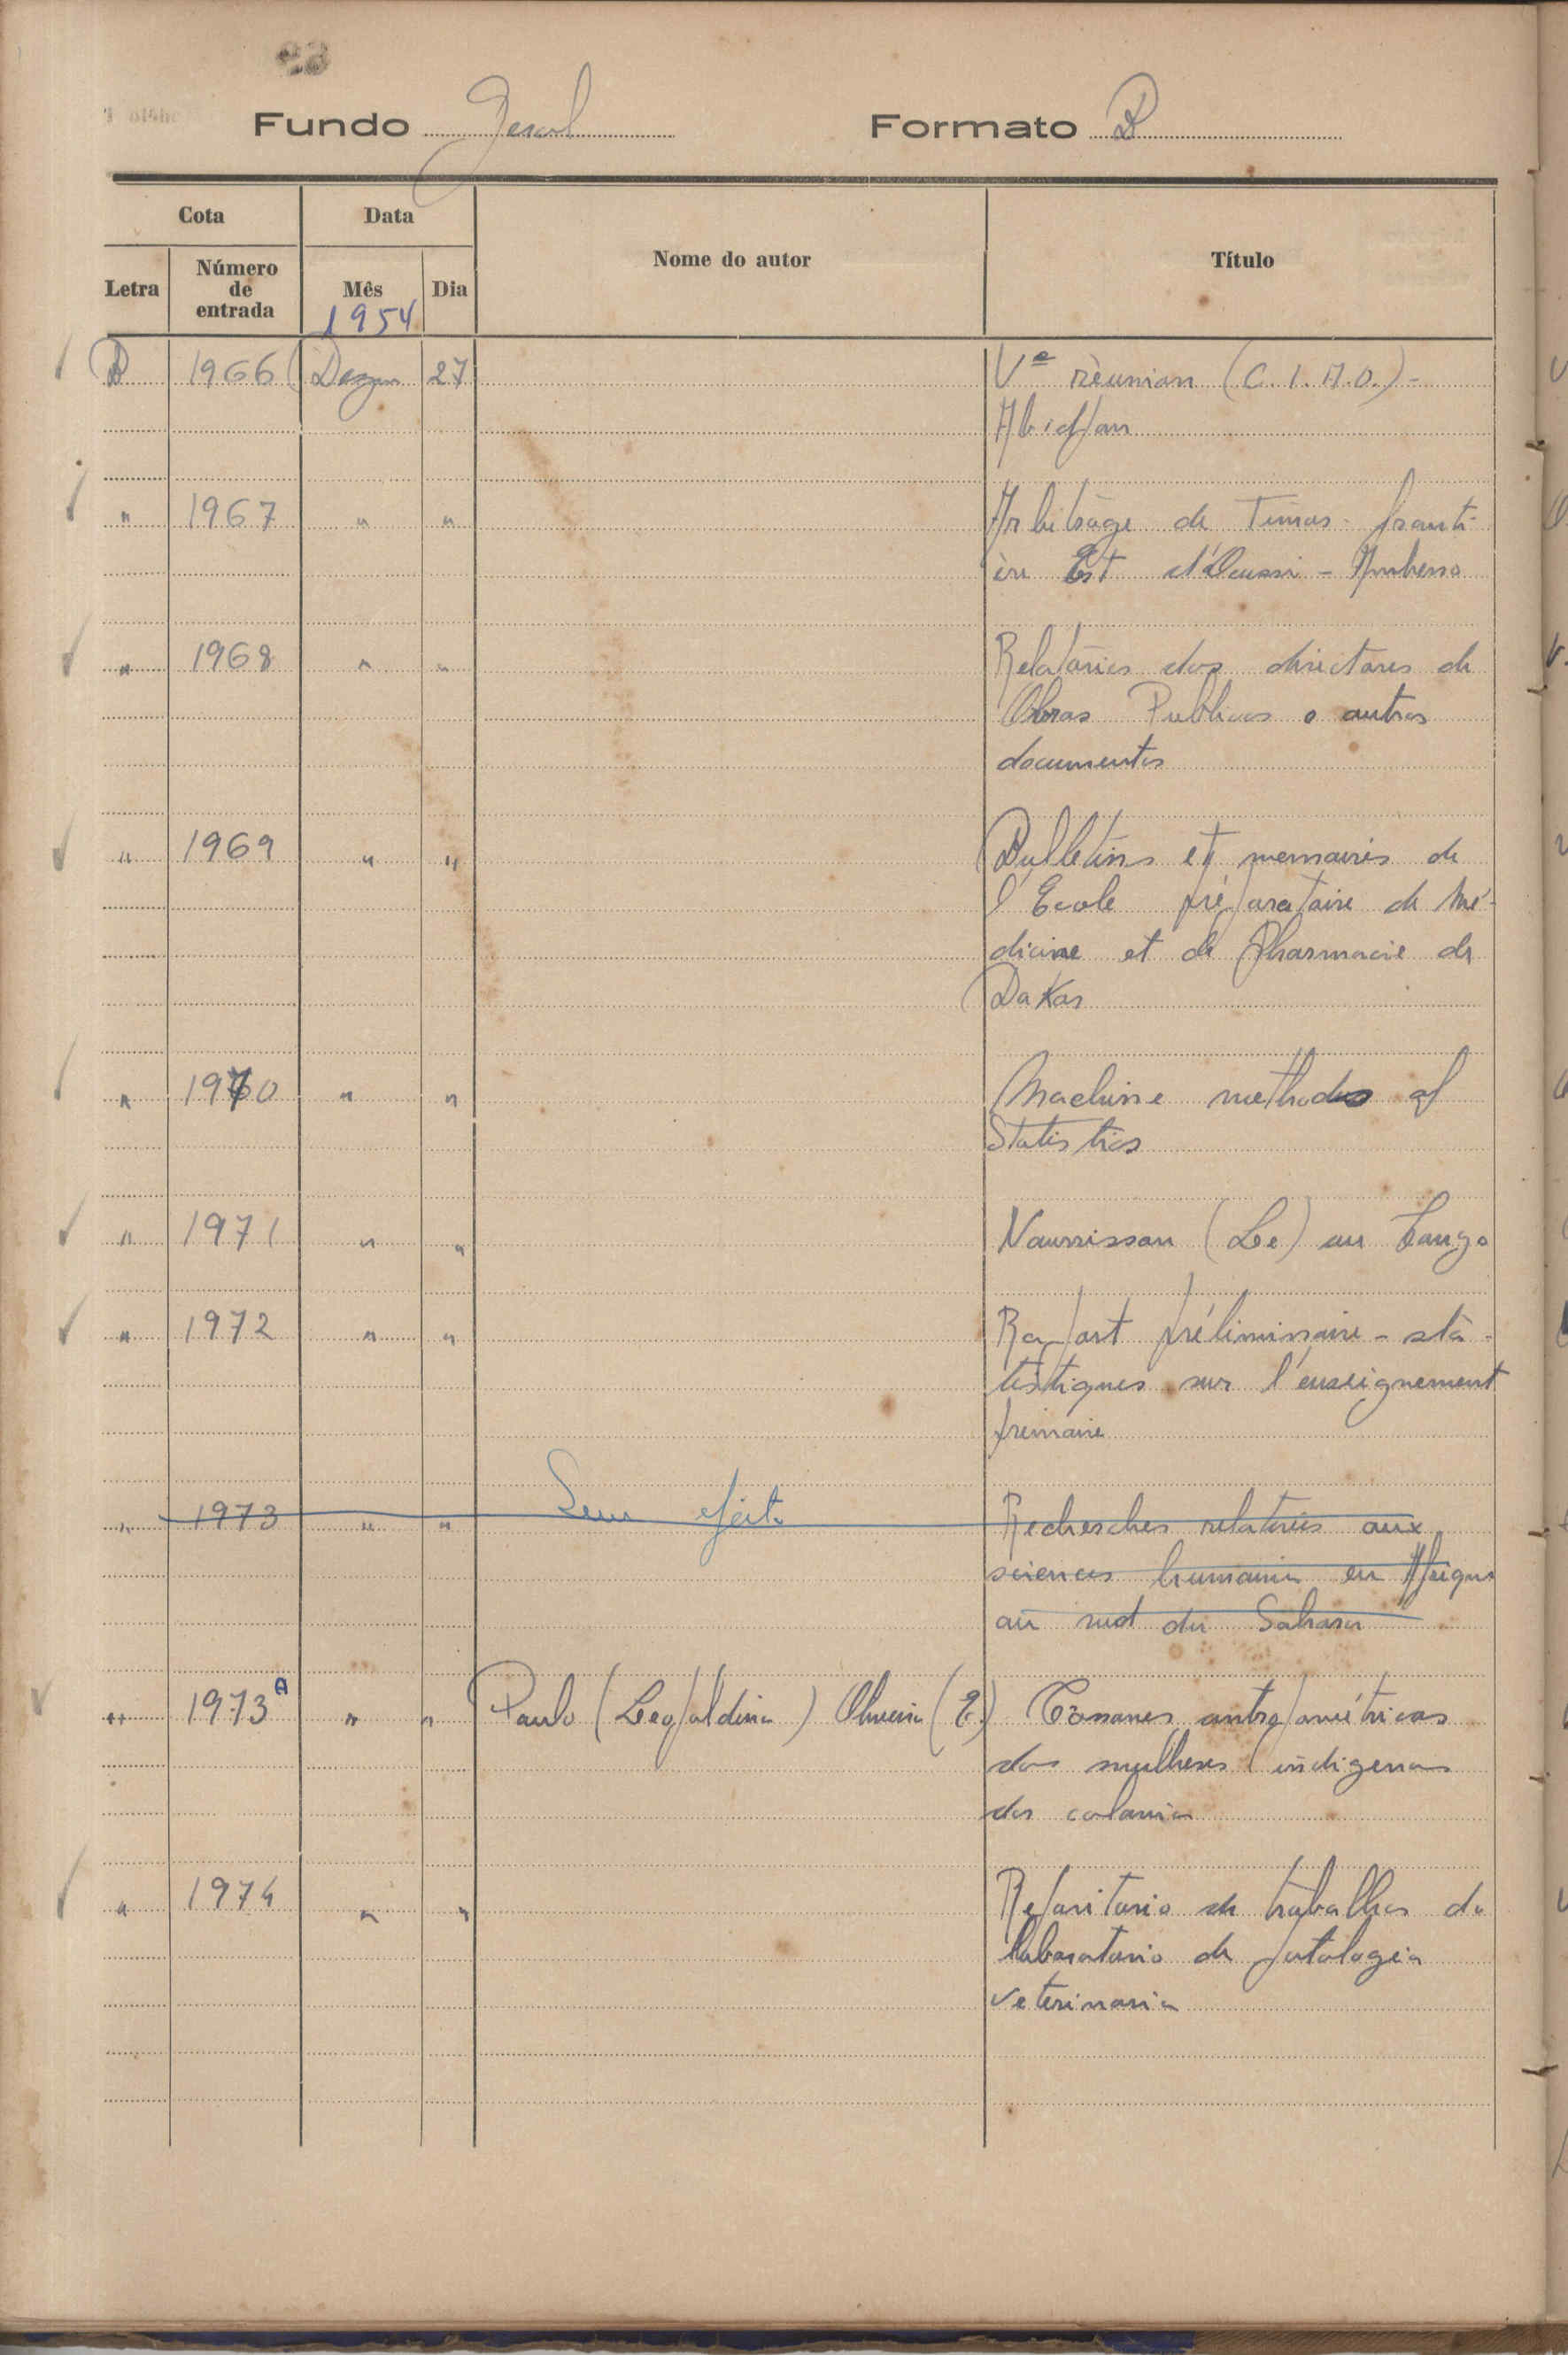 Fundo Geral Formato B
Cota Data Nome do autor Título
Letra Número de entrada Mês Dia
1954
B 1966 Dezem 27 Vª réunion (C. I. A. O.) -
Abidjan
" 1967 " " Arbitrage de Timor - fronti-
ère Est d'Ocussi - Ambeno
" 1968 " " Relatórios dos directores de
Obras Publicas e outros
documentos
" 1969 " " Bulletins et memoires de
l'Ecole préparatoire de Mé-
dicine et de Pharmacie de
Dakar
" 1970 " " Machine methods of
Statistics
" 1971 " " Nourrisson (Le) au Congo
" 1972 " " Raport préliminaire - sta-
tistiques sur l'enseignement
primaire
" 1973 " " Sem efeito Recherches relatives aux
sciences humaines en Afrique
au sud du Sahara
" 1973 A " " Paulo (Leopoldina) Oliveira (E.) Canones antropométricos
das mulheres indigenas
das colonias
" 1974 " " Reportorio de trabalhos do
laboratorio de patologia
veterinaria